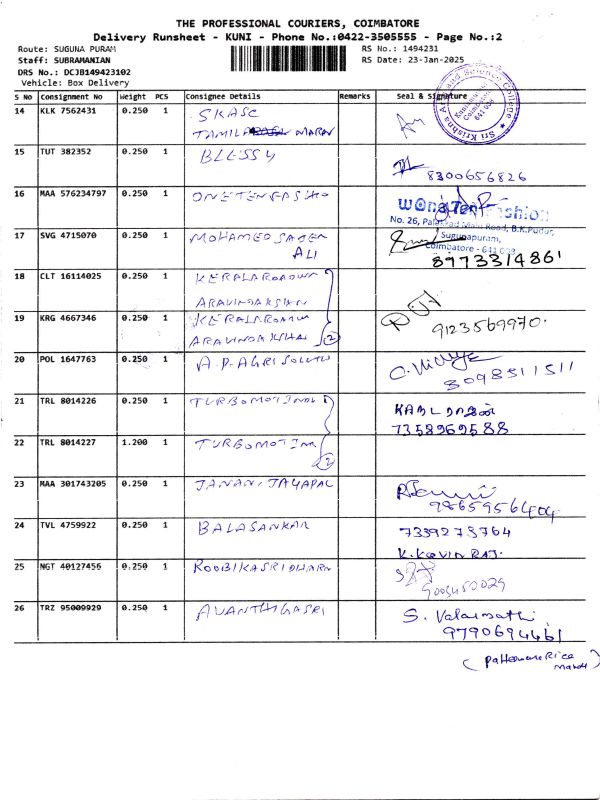 THE PROFESSIONAL COURIERS, COIMBATORE
Delivery Runsheet - KUNI - Phone No.:0422-3505555 - Page No.:2
Route: SUGUNA PURAM RS No.: 1494231
Staff: SUBRAMANIAN RS Date: 23-Jan-2025
DRS No.: DCJB149423102
Vehicle: Box Delivery
S No Consignment No Weight PCS Consignee Details Remarks Seal & Signature
14 KLK 7562431 0.250 1 SKASC
TAMIL MARAN
Sri Krishna Arts and Science College
Coimbatore 641 008
15 TUT 382352 0.250 1 BLESSY
8300656826
16 MAA 576234797 0.250 1 ONETENFASHIO
No. 26, Palakkad Main Road, B.K.Pudur,
17 SVG 4715070 0.250 1 MOHAMED SAGER Sugunapuram,
ALI Coimbatore - 641 008
8973314861
18 CLT 16114025 0.250 1 KERALAROADWA
ARAVINDAKSHAN
19 KRG 4667346 0.250 1 KERALAROADWA
ARAVINDAKSHAN 2 9123569970.
20 POL 1647763 0.250 1 A.P.AGRI SOLUTN
3098511511
21 TRL 8014226 0.250 1 TURBOMOTINDI
7358969588
22 TRL 8014227 1.200 1 TURBOMOTINDI
2
23 MAA 301743205 0.250 1 JANANI JAYAPAL
9865956404
24 TVL 4759922 0.250 1 BALASANKAR 7339273764
K.KAVIN RAJ.
25 NGT 40127456 0.250 1 ROOBIKASRIDHARN
9003450029
26 TRZ 95009929 0.250 1 AVANTHIGASRI S. Valarmathi
9790694461